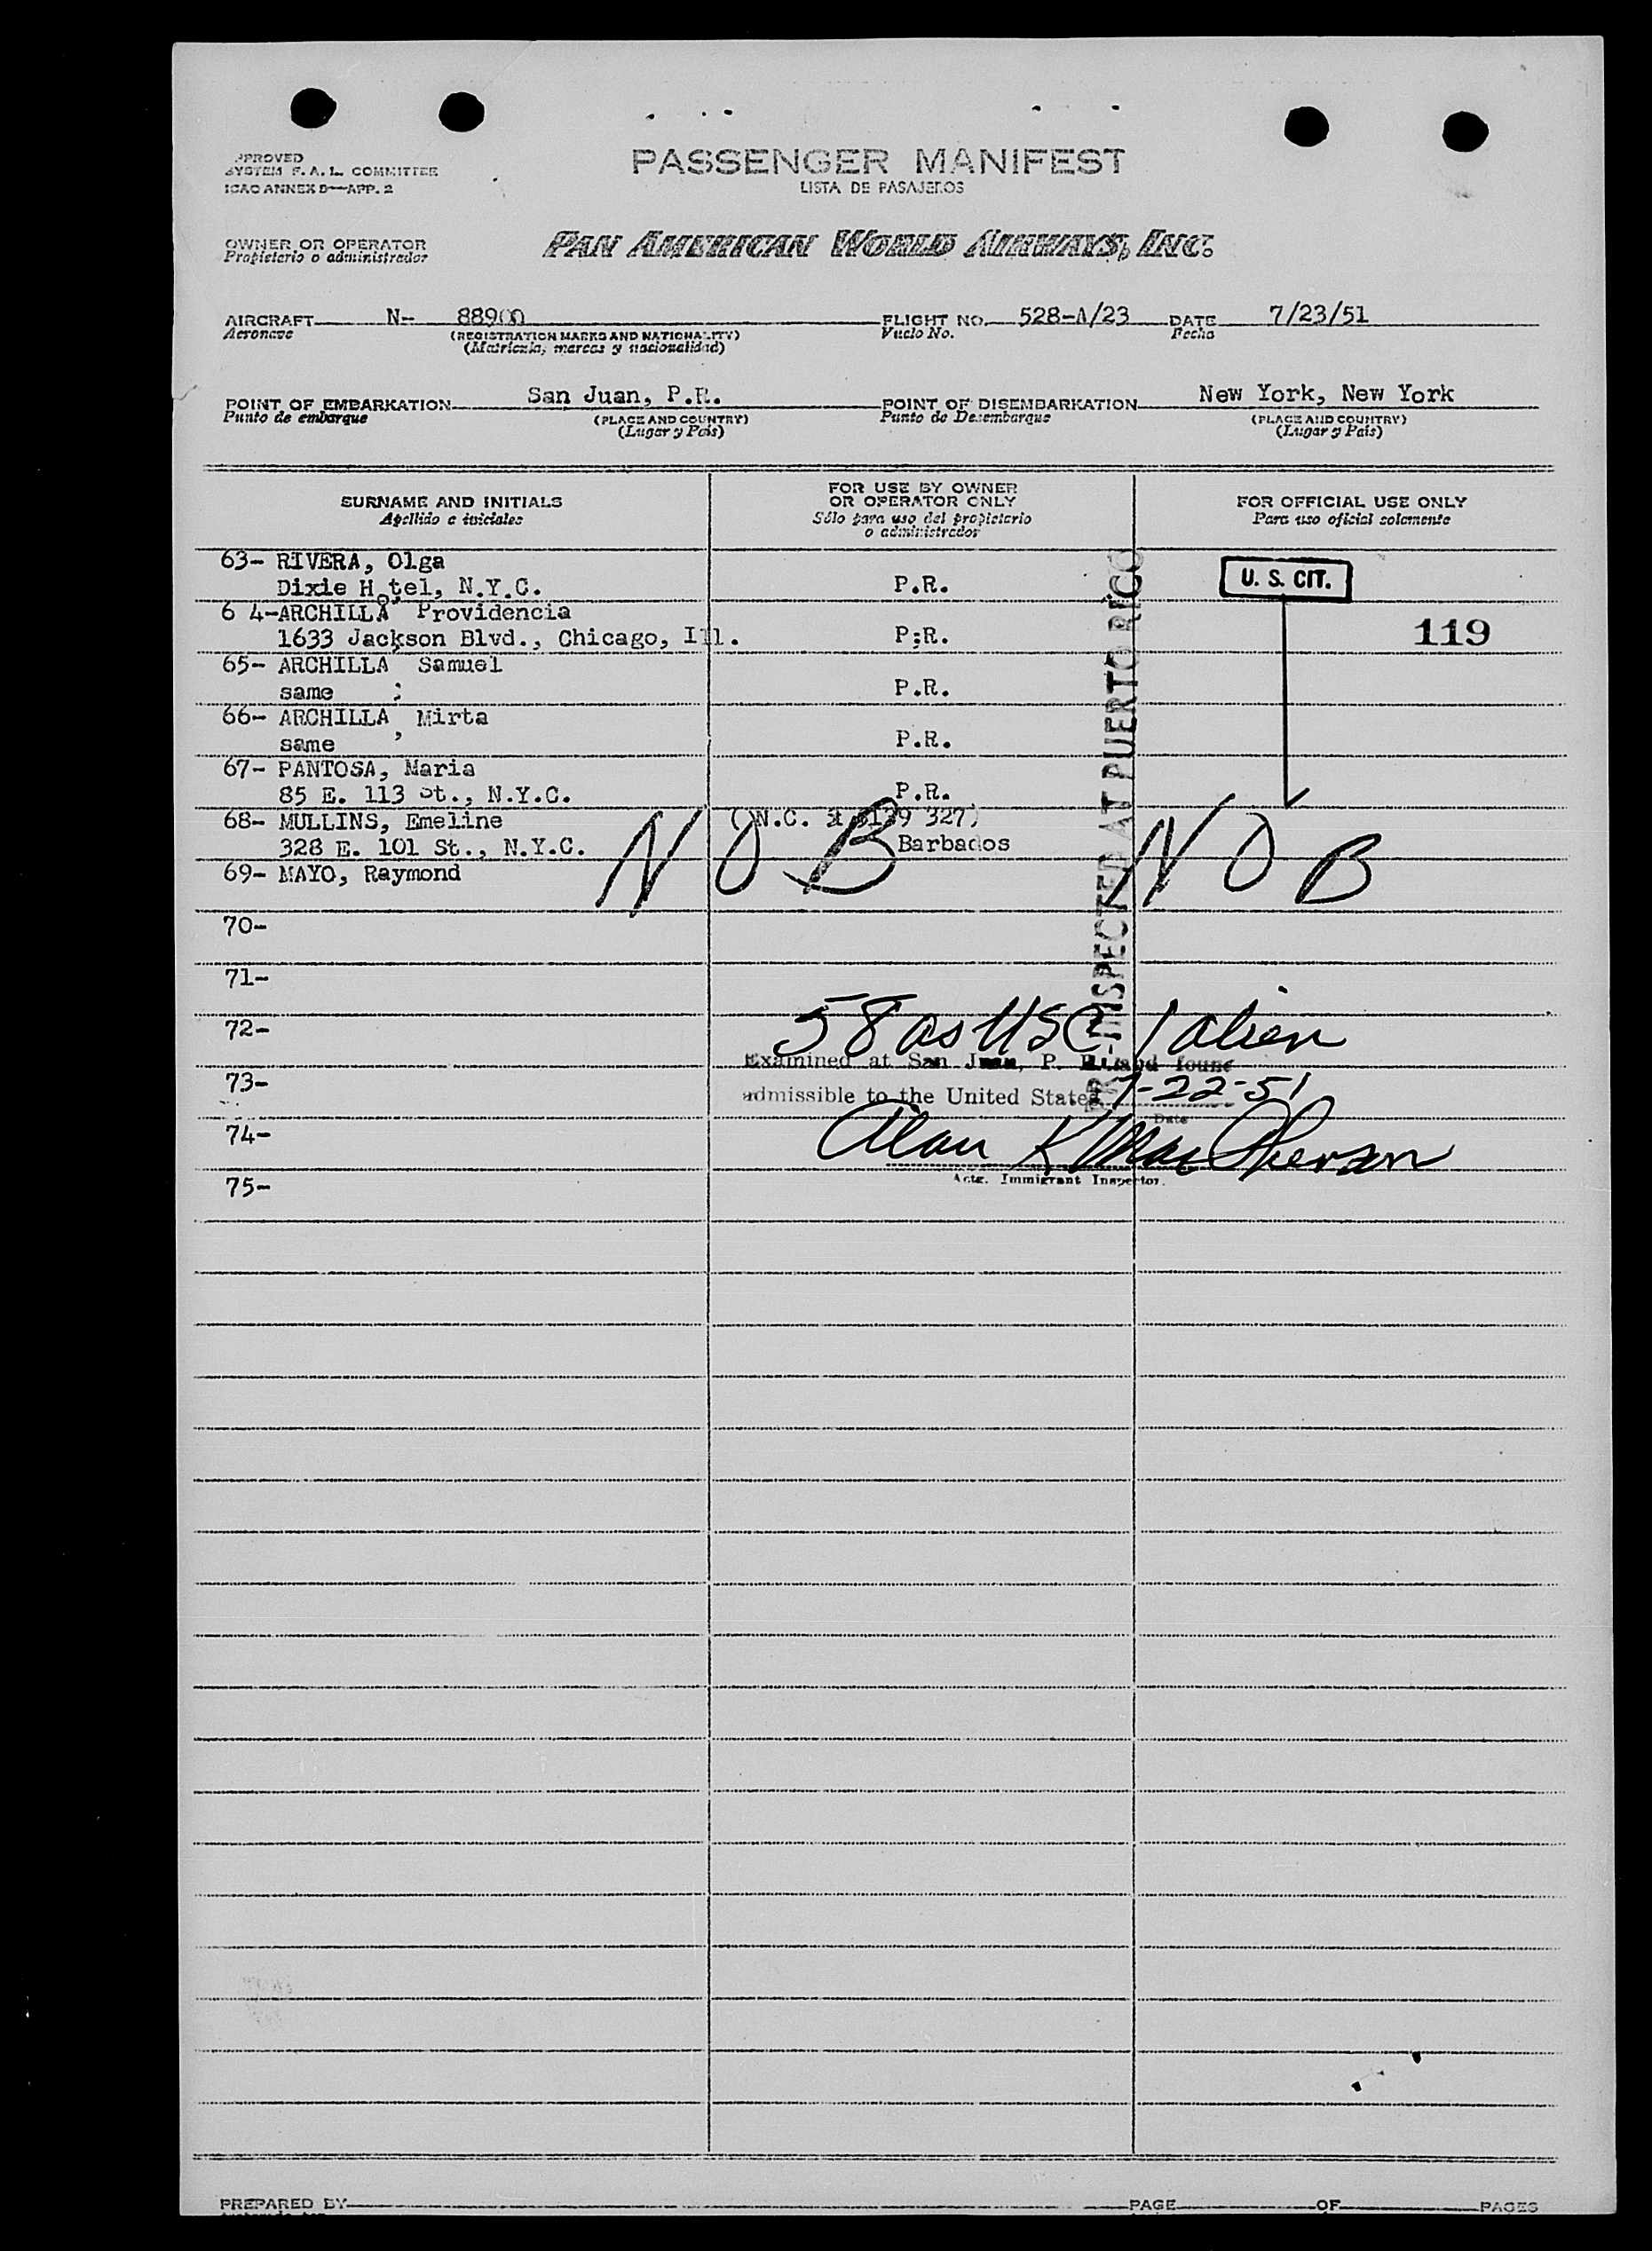 APPROVED
SYSTEM F. A. L. COMMITTEE
ICAO ANNEX 9—APP. 2
PASSENGER MANIFEST
LISTA DE PASAJEROS
OWNER OR OPERATOR
Propietario o administrador
PAN AMERICAN WORLD AIRWAYS, INC.
AIRCRAFT N- 88900 FLIGHT NO. 528-A/23 DATE 7/23/51
Aeronave (REGISTRATION MARKS AND NATIONALITY) Vuelo No. Fecha
(Matricula, marcas y nacionalidad)
POINT OF EMBARKATION San Juan, P.R. POINT OF DISEMBARKATION New York, New York
Punto de embarque (PLACE AND COUNTRY) Punto de Desembarque (PLACE AND COUNTRY)
(Lugar y Pais) (Lugar y Pais)
SURNAME AND INITIALS FOR USE BY OWNER OR OPERATOR ONLY FOR OFFICIAL USE ONLY
Apellido e iniciales Sólo para uso del propietario o administrador Para uso oficial solamente
63- RIVERA, Olga
Dixie Hotel, N.Y.C. P.R. U. S. CIT.
6 4-ARCHILLA, Providencia
1633 Jackson Blvd., Chicago, Ill. P.R. 119
65- ARCHILLA, Samuel
same P.R.
66- ARCHILLA, Mirta
same P.R.
67- PANTOSA, Maria
85 E. 113 St., N.Y.C. P.R.
68- MULLINS, Emeline (N.C. 327)
328 E. 101 St., N.Y.C. Barbados
69- MAYO, Raymond
N O B N O B
70-
71-
72-
58 as USC 1 alien
Examined at San Juan, P. R. and found
73-
admissible to the United States 7-22-51
Date
74-
Alan K MacPherson
Actg. Immigrant Inspector.
75-
PRE-INSPECTED AT PUERTO RICO
PREPARED BY PAGE OF PAGES